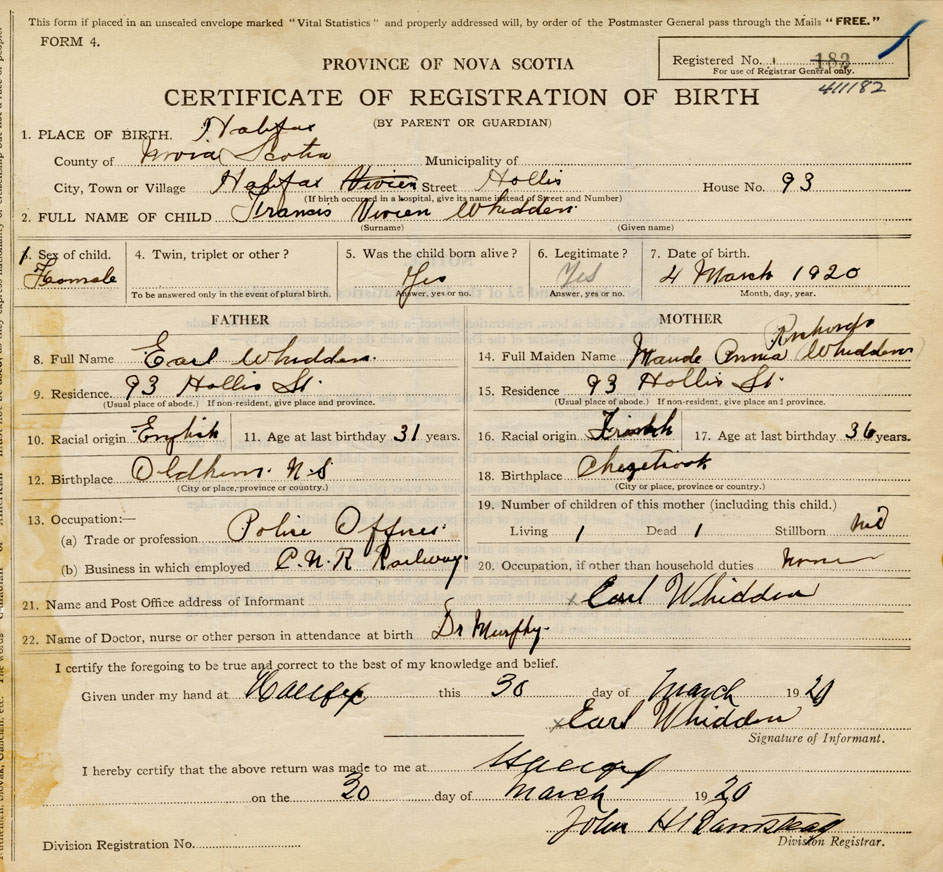 This form if placed in an unsealed envelope marked "Vital Statistics" and properly addressed will, by order of the Postmaster General pass through the Mails "FREE."
FORM 4.
Registered No. 182
For use of Registrar General only.
411182
PROVINCE OF NOVA SCOTIA
CERTIFICATE OF REGISTRATION OF BIRTH
(BY PARENT OR GUARDIAN)
1. PLACE OF BIRTH. Halifax
County of Nova Scotia Municipality of
City, Town or Village Halifax Vivien Street Hollis House No. 93
(If birth occurred in a hospital, give its name instead of Street and Number)
2. FULL NAME OF CHILD Francis Vivien Whidden
(Surname) (Given name)
3. Sex of child. Female 4. Twin, triplet or other? 5. Was the child born alive? Yes 6. Legitimate? Yes 7. Date of birth. 4 March 1920
To be answered only in the event of plural birth. Answer, yes or no. Answer, yes or no. Month, day, year.
FATHER
8. Full Name Earl Whidden
9. Residence. 93 Hollis St.
(Usual place of abode.) If non-resident, give place and province.
10. Racial origin English 11. Age at last birthday 31 years.
12. Birthplace Oldham. N.S
(City or place, province or country.)
13. Occupation:—
(a) Trade or profession Police Officer
(b) Business in which employed C.N.R Railway
MOTHER
Richards
14. Full Maiden Name Maude Whidden
15. Residence 93 Hollis St.
(Usual place of abode.) If non-resident, give place and province.
16. Racial origin 17. Age at last birthday 36 years.
18. Birthplace Chezetcook
(City or place, province or country.)
19. Number of children of this mother (including this child.)
Living 1 Dead 1 Stillborn
20. Occupation, if other than household duties None
21. Name and Post Office address of Informant x Earl Whidden
22. Name of Doctor, nurse or other person in attendance at birth Dr Murphy.
I certify the foregoing to be true and correct to the best of my knowledge and belief.
Given under my hand at Halifax this 30 day of March 1920
x Earl Whidden
Signature of Informant.
I hereby certify that the above return was made to me at Halifax
on the 30 day of March 1920
John H
Division Registrar.
Division Registration No.